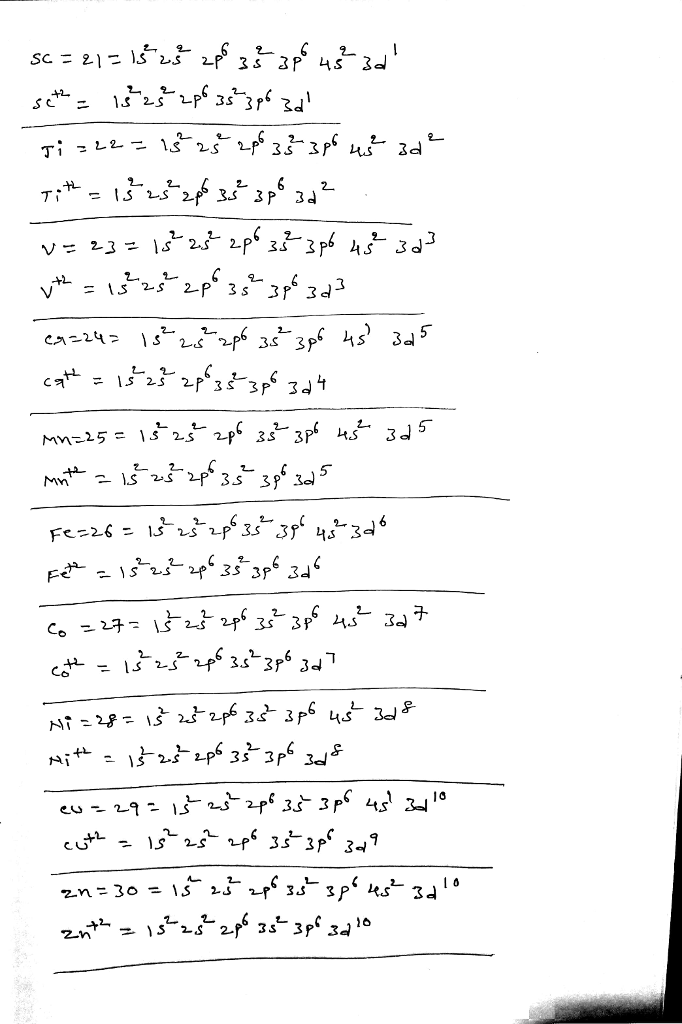 Sc = 21 = 1s² 2s² 2p⁶ 3s² 3p⁶ 4s² 3d¹
Sc⁺² = 1s² 2s² 2p⁶ 3s² 3p⁶ 3d¹
Ti = 22 = 1s² 2s² 2p⁶ 3s² 3p⁶ 4s² 3d²
Ti⁺² = 1s² 2s² 2p⁶ 3s² 3p⁶ 3d²
V = 23 = 1s² 2s² 2p⁶ 3s² 3p⁶ 4s² 3d³
V⁺² = 1s² 2s² 2p⁶ 3s² 3p⁶ 3d³
Cr = 24 = 1s² 2s² 2p⁶ 3s² 3p⁶ 4s¹ 3d⁵
Cr⁺² = 1s² 2s² 2p⁶ 3s² 3p⁶ 3d⁴
Mn = 25 = 1s² 2s² 2p⁶ 3s² 3p⁶ 4s² 3d⁵
Mn⁺² = 1s² 2s² 2p⁶ 3s² 3p⁶ 3d⁵
Fe = 26 = 1s² 2s² 2p⁶ 3s² 3p⁶ 4s² 3d⁶
Fe⁺² = 1s² 2s² 2p⁶ 3s² 3p⁶ 3d⁶
Co = 27 = 1s² 2s² 2p⁶ 3s² 3p⁶ 4s² 3d⁷
Co⁺² = 1s² 2s² 2p⁶ 3s² 3p⁶ 3d⁷
Ni = 28 = 1s² 2s² 2p⁶ 3s² 3p⁶ 4s² 3d⁸
Ni⁺² = 1s² 2s² 2p⁶ 3s² 3p⁶ 3d⁸
Cu = 29 = 1s² 2s² 2p⁶ 3s² 3p⁶ 4s¹ 3d¹⁰
Cu⁺² = 1s² 2s² 2p⁶ 3s² 3p⁶ 3d⁹
Zn = 30 = 1s² 2s² 2p⁶ 3s² 3p⁶ 4s² 3d¹⁰
Zn⁺² = 1s² 2s² 2p⁶ 3s² 3p⁶ 3d¹⁰